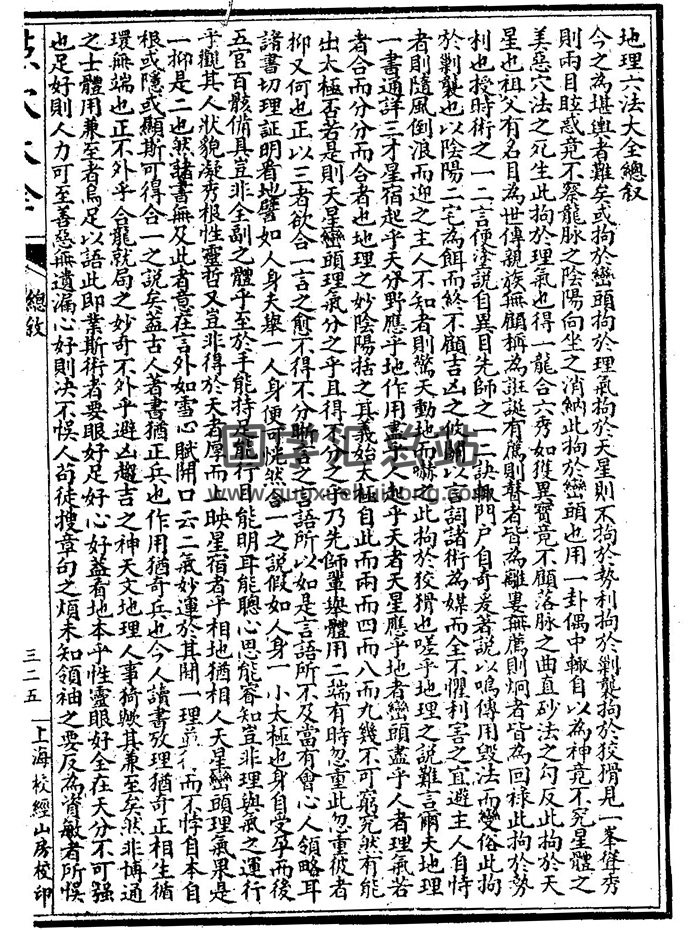 地理六法大全總叙
今之為堪輿者難矣或拘於巒頭拘於理氣拘於天星則不拘於勢利拘於剿襲拘於狡猾見一峯聳秀
則兩目眩惑竟不察龍脉之陰陽向坐之消納此拘於巒頭也用一卦偶中輙自以為神竟不究星體之
美惡穴法之死生此拘於理氣也得一龍合六秀如獲異寶竟不顧落脉之曲直砂法之勾反此拘於天
星也祖父有名目為世傳親族無顧稱為誑誕有薦則瞽者皆為離婁無薦則炯者皆為回祿此拘於勢
利也授時術之一二言便塗說自異目先師之一二訣輙門户自奇爰著說以鳴傳用毀法而變俗此拘
於剿襲也以陰陽二宅為餌而終不顧吉凶之攸關以言詞諸術為媒而全不懼利害之宜避主人自恃
者則隨風倒浪而迎之主人不知者則驚天動地而嚇此拘於狡猾也嗟乎地理之說難言爾夫地理
一書通詳三才星宿起乎天分野應乎地作用盡乎起乎天者天星應乎地者巒頭盡乎人者理氣若
者合而分分而合者也地理之妙陰陽括之其義始太極自此而兩而四而八而九幾不可窮究然有能
出太極否若是則天星巒頭理氣分之乎且得不分之乎乃先師輩與體用二端有時忽重此忽重彼者
抑又何也正以三者欲合一言之愈不得不分晰言之言語所以如是言語所不及當有會心人領略耳
諸書切理証明者地譬如人身夫舉一人身便可恍然合一之說假如人身一小太極也身自受孕而後
五官百骸備具豈非全副之體乎至於手能持足能行目能明耳能聽心思能審知豈非理與氣之運行
乎觀其人狀貌凝秀根性靈哲又豈非得於天者厚而映星宿者乎相地猶相人天星巒頭理氣果是
一抑是二也然諸書無及此者意在言外如雪心賦開口云二氣妙運於其間一理並行而不悖自本自
根或隱或顯斯可得合一之說矣蓋古人著書猶正兵也作用猶奇兵也今人讀書攷理猶奇正相生循
環無端也正不外乎合龍就局之妙奇不外乎避凶趨吉之神天文地理人事猗歟其兼至矣然非博通
之士體用兼至者烏足以語此即業斯術者要眼好足好心好蓋看地本乎性靈眼好全在天分不可強
也足好則人力可至善惡無遺漏心好則决不悮人苟徒搜章句之煩未知領袖之要反為資敏者所悮
總敘
三二五
上海校經山房校印
国学汇总站
www.guoxuehuizong.com